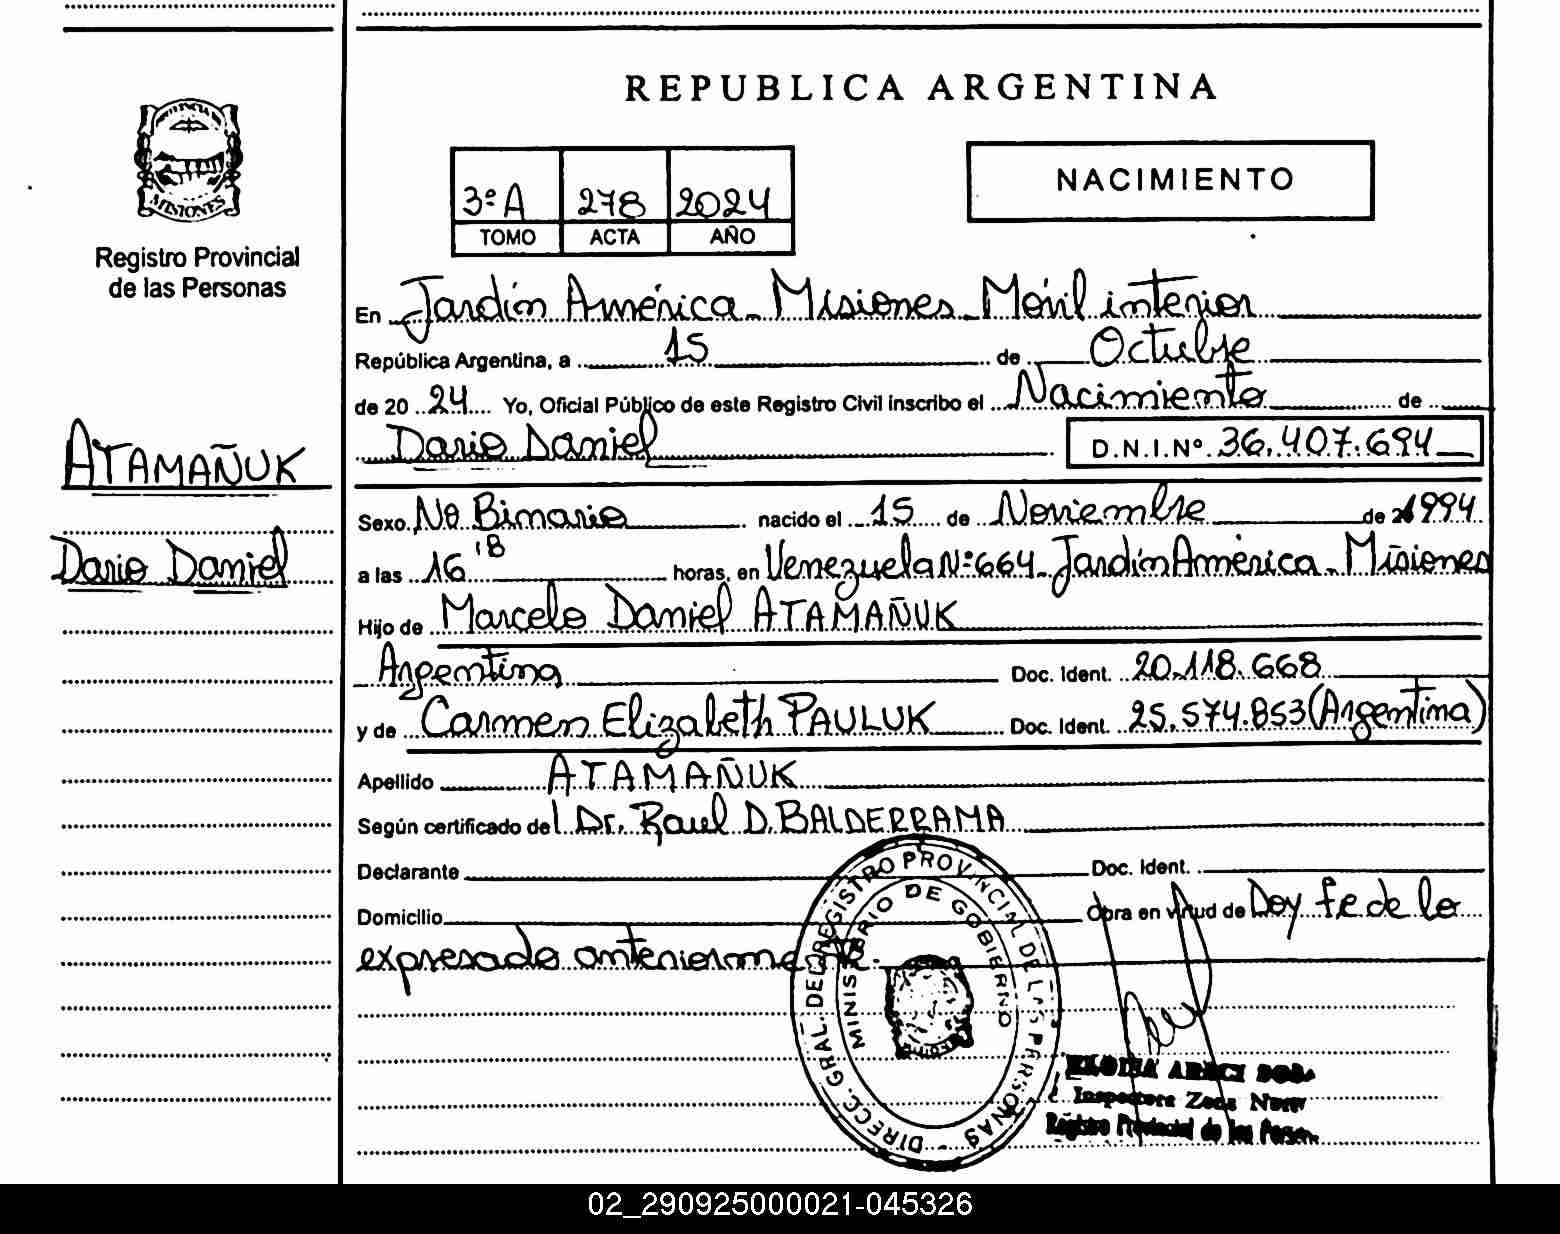 REPUBLICA ARGENTINA
MISIONES
Registro Provincial
de las Personas
NACIMIENTO
3º A 278 2024
TOMO ACTA AÑO
En Jardín América - Misiones - Móvil interior
República Argentina, a 15 de Octubre
de 20 24 Yo, Oficial Público de este Registro Civil inscribo el Nacimiento de
Dario Daniel D.N.I.Nº 36.407.694
ATAMAÑUK
Dario Daniel
Sexo No Binario nacido el 15 de Noviembre de 1994
a las 16'18 horas, en Venezuela Nº:664 - Jardín América - Misiones
Hijo de Marcelo Daniel ATAMAÑUK
Argentina Doc. Ident. 20.118.668
y de Carmen Elizabeth PAULUK Doc. Ident. 25.574.853 (Argentina)
Apellido ATAMAÑUK
Según certificado del Dr. Raul D. BALDERRAMA
Declarante Doc. Ident.
Domicilio Obra en virtud de Doy fe de lo
expresado anteriormente.
DIRECC. GRAL. DEL REGISTRO PROVINCIAL DE LAS PERSONAS
MINISTERIO DE GOBIERNO
Inspectora Zona
Registro Provincial de las
02_290925000021-045326